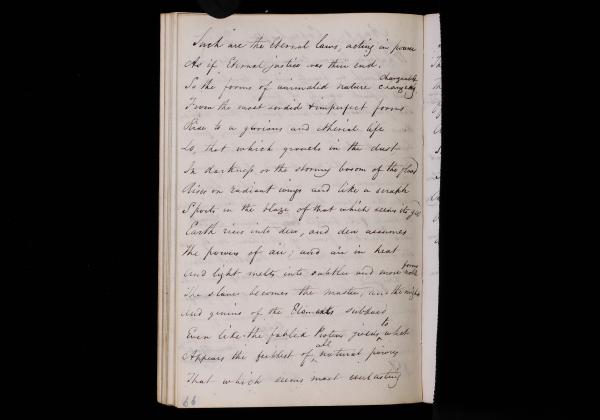 Such are the eternal laws, acting in power
As if Eternal justice was their end.
So the forms of animated nature changeable changing,
From the most sordid & imperfect forms
Rise to a glorious and etherial life
Lo, that which grovels in the dust
In darkness or the stormy bosom of the flood
Rises on radiant wings and like a seraph
Sports in the blaze of that which seems its god
Earth rises into dew, and dew assumes
The powers of air; and air in heat
And light melts into subtler and more noble forms
The slave becomes the master, and the might
And genius of the Elements subdued
Even like the fabled Proteus yields to what
Appears the feeblest of all natural powers
That which seems most everlasting
66